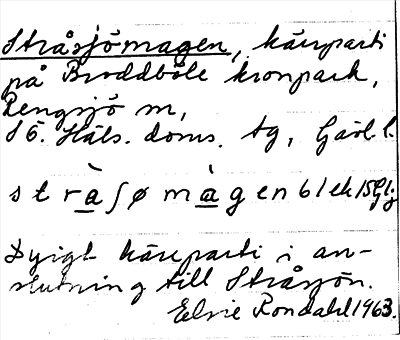 Stråsjömagen, kärrparti
på Broddböle kronpark,
Rengsjö sn,
Sö. Häls. doms. tg, Gävl. l.
Dyigt kärrparti i an-
slutning till Stråsjön.
Elsie Rondahl 1963.